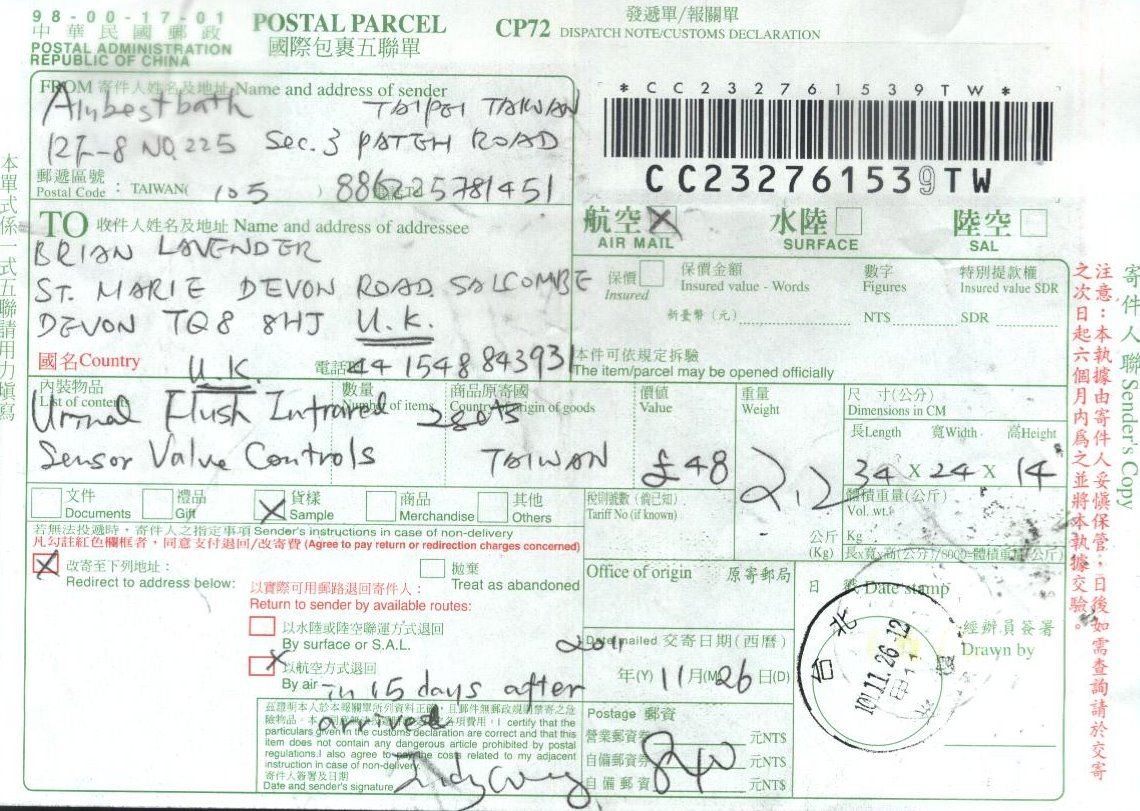 98-00-17-01
中華民國郵政
POSTAL ADMINISTRATION
REPUBLIC OF CHINA
POSTAL PARCEL
國際包裹五聯單
CP72
發遞單/報關單
DISPATCH NOTE/CUSTOMS DECLARATION
FROM 寄件人姓名及地址 Name and address of sender
TAIPEI TAIWAN
NO.225 Sec.3 PATEH ROAD
郵遞區號
Postal Code : TAIWAN( 105 ) 886225781451
*CC232761539TW*
CC232761539TW
航空 X
AIR MAIL
水陸
SURFACE
陸空
SAL
TO 收件人姓名及地址 Name and address of addressee
BRIAN LAVENDER
ST. MARIE DEVON ROAD SALCOMBE
DEVON TQ8 8HJ U.K.
國名Country U.K.
電話 44 1548 843931
保價
Insured
保價金額
Insured value - Words
數字
Figures
特別提款權
Insured value SDR
新臺幣（元）
NT$
SDR
本件可依規定拆驗
The item/parcel may be opened officially
內裝物品
List of contents
數量
Number of items
商品原寄國
Country of origin of goods
價值
Value
重量
Weight
尺 寸(公分)
Dimensions in CM
長Length 寬Width 高Height
Urinal Flush Infrared 2sets
Sensor Valve Controls TAIWAN £48 2.2 34 X 24 X 14
體積重量(公斤)
Vol. wt.
Kg
公斤
(Kg)
長x寬x高(公分)/8000=體積重量(公斤)
文件
Documents
禮品
Gift
X 貨樣
Sample
商品
Merchandise
其他
Others
稅則號數(倘已知)
Tariff No (if known)
若無法投遞時，寄件人之指定事項 Sender's instructions in case of non-delivery
凡勾註紅色欄框者，同意支付退回/改寄費 (Agree to pay return or redirection charges concerned)
X 改寄至下列地址：
Redirect to address below:
拋棄
Treat as abandoned
以實際可用郵路退回寄件人：
Return to sender by available routes:
以水陸或陸空聯運方式退回
By surface or S.A.L.
X 以航空方式退回
By air in 15 days after
arrived
Office of origin 原寄郵局
Date mailed 交寄日期(西曆)
2011 年(Y) 11 月(M) 26 日(D)
日 戳 Date stamp
台 北
101.11.26-12
經辦員簽署
Drawn by
Postage 郵資
營業郵資券 元NT$
自備郵資券 840 元NT$
自備郵資 元NT$
I certify that the
particulars given in the customs declaration are correct and that this
item does not contain any dangerous article prohibited by postal
regulations.I also agree to pay the costs related to my adjacent
instruction in case of non-delivery.
寄件人簽署及日期
Date and sender's signature
本單式係一式五聯請用力填寫
寄件人聯 Sender's Copy
注意：本執據由寄件人妥慎保管；日後如需查詢請於交寄
之次日起六個月內為之並將本執據交驗。